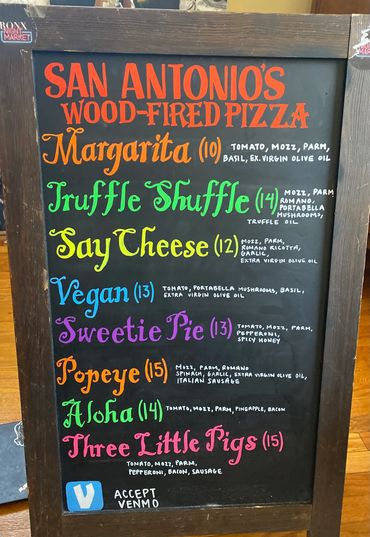 BRONX
NIGHT
MARKET
SAN ANTONIO'S
WOOD-FIRED PIZZA
Margarita (10) TOMATO, MOZZ, PARM,
BASIL, EX. VIRGIN OLIVE OIL
Truffle Shuffle (14) MOZZ, PARM
ROMANO,
PORTABELLA
MUSHROOMS,
TRUFFLE OIL
Say Cheese (12) MOZZ, PARM,
ROMANO RICOTTA,
GARLIC,
EXTRA VIRGIN OLIVE OIL
Vegan (13) TOMATO, PORTABELLA MUSHROOMS, BASIL,
EXTRA VIRGIN OLIVE OIL
Sweetie Pie (13) TOMATO, MOZZ, PARM,
PEPPERONI,
SPICY HONEY
Popeye (15) MOZZ, PARM, ROMANO
SPINACH, GARLIC, EXTRA VIRGIN OLIVE OIL,
ITALIAN SAUSAGE
Aloha (14) TOMATO, MOZZ, PARM, PINEAPPLE, BACON
Three Little Pigs (15)
TOMATO, MOZZ, PARM,
PEPPERONI, BACON, SAUSAGE
V ACCEPT
VENMO